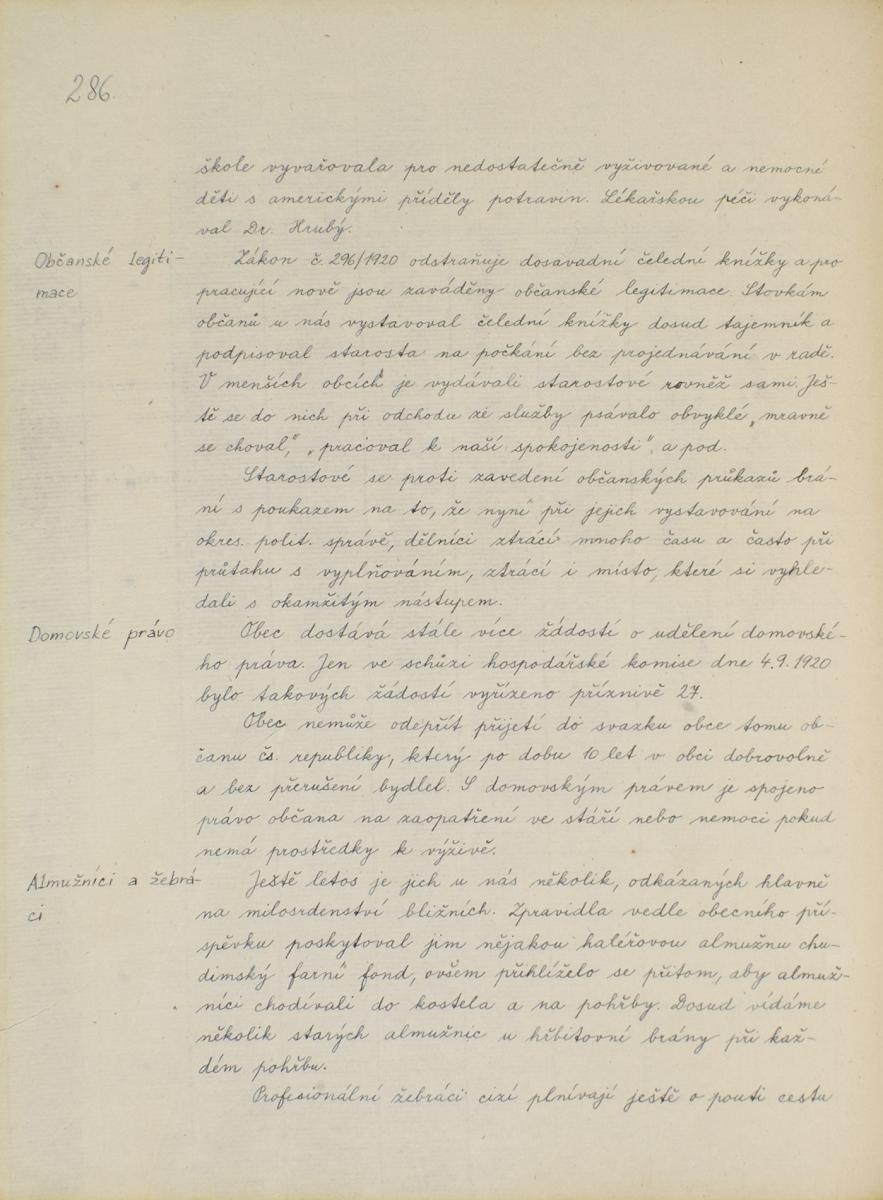 286.
škole vyvařovala pro nedostatečně vyživované a nemocné
děti s americkými příděly potravin. Lékařskou péči vykoná-
val Dr. Hrubý.
Občanské legiti-
mace
Zákon č. 296/1920 odstraňuje dosavadní čelední knížky a pro
pracující nově jsou zaváděny občanské legitimace. Stovkám
občanů u nás vystavoval čelední knížky dosud tajemník a
podpisoval starosta na počkání bez projednávání v radě.
V menších obcích je vydávali starostové rovněž sami. Ješ-
tě se do nich při odchodu ze služby psávalo obvyklé „mravně
se choval,“ „pracoval k naší spokojenosti“, a pod.
Starostové se proti zavedení občanských průkazů brá-
ní s poukazem na to, že nyní při jejich vystavování na
okres. polit. správě, dělníci ztrácí mnoho času a často při
průtahu s vyplňováním, ztrácí i místo, které si vyhle-
dali s okamžitým nástupem.
Domovské právo
Obec dostává stále více žádostí o udělení domovské-
ho práva. Jen ve schůzi hospodářské komise dne 4.9.1920
bylo takových žádostí vyřízeno příznivě 27.
Obec nemůže odepřít přijetí do svazku obce tomu ob-
čanu čs. republiky, který po dobu 10 let v obci dobrovolně
a bez přerušení bydlel. S domovským právem je spojeno
právo občana na zaopatření ve stáří nebo nemoci pokud
nemá prostředky k výživě.
Almužníci a žebrá-
ci
Ještě letos je jich u nás několik, odkázaných hlavně
na milosrdenství bližních. Zpravidla vedle obecního pří-
spěvku poskytoval jim nějakou haléřovou almužnu chu-
dimský farní fond, ovšem přihlíželo se přitom, aby almuž-
níci chodívali do kostela a na pohřby. Dosud vídáme
několik starých almužnic u hřbitovní brány při kaž-
dém pohřbu.
Profesionální žebráci cizí plnívají ještě o pouti cestu